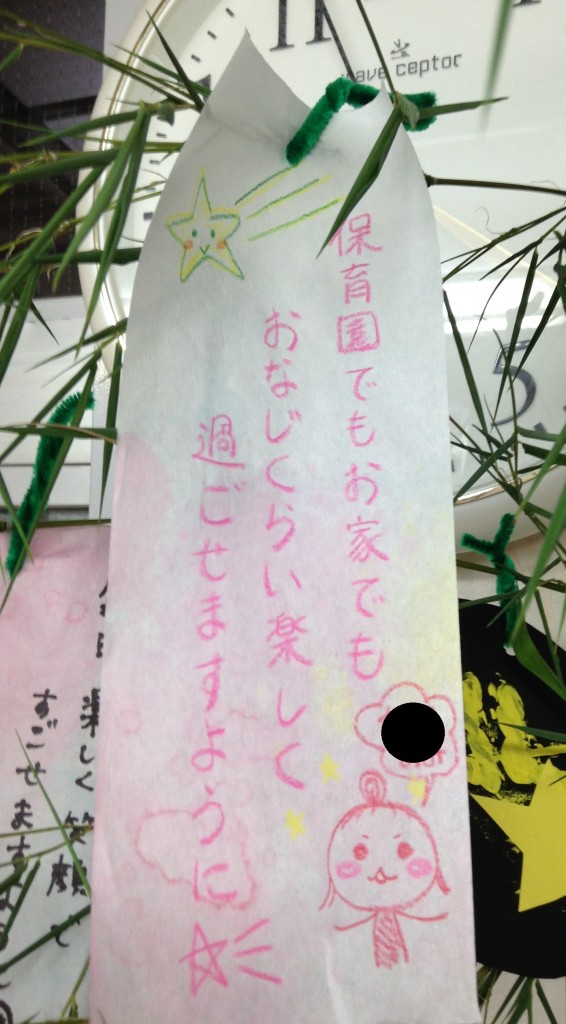 wave ceptor
5
保育園でもお家でも
おなじくらい楽しく
過ごせますように☆
楽しく 笑顔で
すごせますように